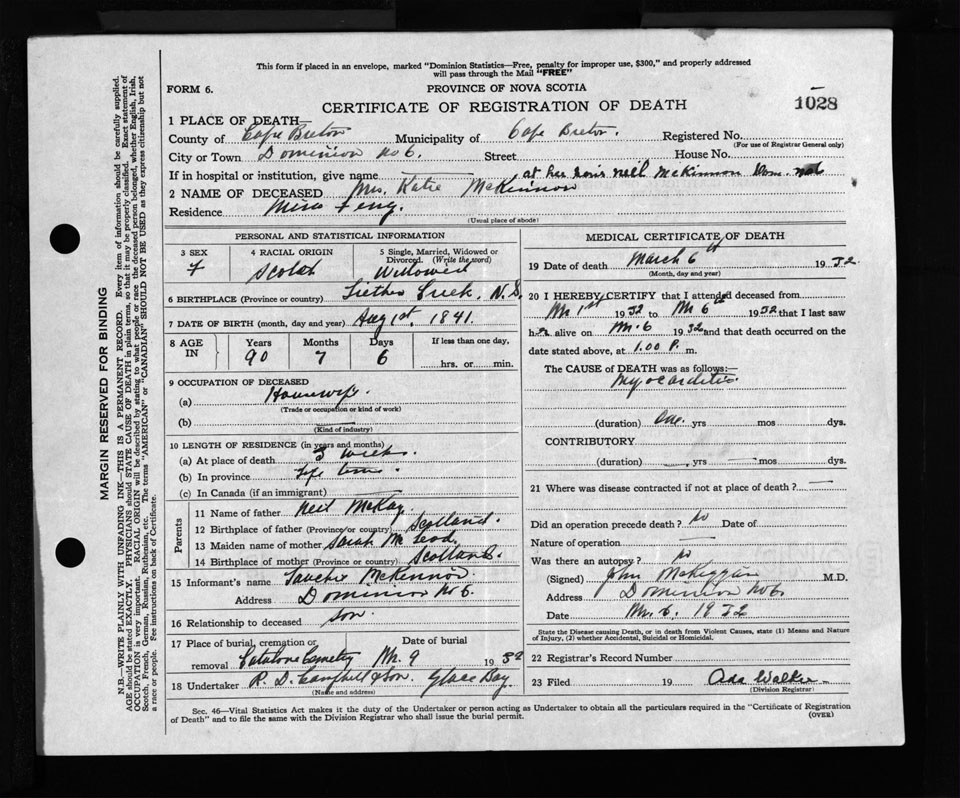 This form if placed in an envelope, marked "Dominion Statistics—Free, penalty for improper use, $300," and properly addressed
will pass through the Mail "FREE"
FORM 6.
PROVINCE OF NOVA SCOTIA
CERTIFICATE OF REGISTRATION OF DEATH
1028
1 PLACE OF DEATH—
County of Cape Breton Municipality of Cape Breton. Registered No.
(For use of Registrar General only)
City or Town Dominion No 6. Street House No.
If in hospital or institution, give name at her son's Neil McKinnon Dom. No 6
2 NAME OF DECEASED Mrs. Katie McKinnon
Residence Mira Fery.
(Usual place of abode)
PERSONAL AND STATISTICAL INFORMATION
3 SEX
F
4 RACIAL ORIGIN
Scotch
5 Single, Married, Widowed or
Divorced. (Write the word)
Widowed
6 BIRTHPLACE (Province or country) N.S.
7 DATE OF BIRTH (month, day and year) Aug 1st, 1841.
8 AGE IN
Years Months Days If less than one day,
90 7 6 hrs. or min.
9 OCCUPATION OF DECEASED
(a) Housewife.
(Trade or occupation or kind of work)
(b)
(Kind of industry)
10 LENGTH OF RESIDENCE (in years and months)
(a) At place of death 3 weeks.
(b) In province Life time.
(c) In Canada (if an immigrant)
Parents
11 Name of father Neil McKay
12 Birthplace of father (Province or country) Scotland.
13 Maiden name of mother Sarah McLeod.
14 Birthplace of mother (Province or country) Scotland.
15 Informant's name McKinnon
Address Dominion No 6.
16 Relationship to deceased son
17 Place of burial, cremation or
removal Catalone Cemetery
Date of burial
Mr. 9 1932
18 Undertaker R. D. Campbell & Son. Glace Bay.
(Name and address)
MEDICAL CERTIFICATE OF DEATH
19 Date of death March 6th 1932
(Month, day and year)
20 I HEREBY CERTIFY that I attended deceased from
Mr 1st 1932 to Mr 6th 1932 that I last saw
her alive on Mr. 6 1932 and that death occurred on the
date stated above, at 1.00 P. m.
The CAUSE of DEATH was as follows:—
Myocarditis.
(duration) One. yrs mos dys.
CONTRIBUTORY
(duration) yrs mos dys.
21 Where was disease contracted if not at place of death?
Did an operation precede death? No Date of
Nature of operation
Was there an autopsy? No
(Signed) John McKiggan M.D.
Address Dominion No 6.
Date Mr. 6. 1932
State the Disease causing Death, or in death from Violent Causes, state (1) Means and Nature
of Injury, (2) whether Accidental, Suicidal or Homicidal.
22 Registrar's Record Number
23 Filed 19 Ada Walker
(Division Registrar)
Sec. 46—Vital Statistics Act makes it the duty of the Undertaker or person acting as Undertaker to obtain all the particulars required in the "Certificate of Registration
of Death" and to file the same with the Division Registrar who shall issue the burial permit.
(OVER)
MARGIN RESERVED FOR BINDING
N.B.—WRITE PLAINLY WITH UNFADING INK—THIS IS A PERMANENT RECORD. Every item of information should be carefully supplied.
AGE should be stated EXACTLY. PHYSICIANS should STATE CAUSE OF DEATH in plain terms, so that it may be properly classified. Exact statement of
OCCUPATION is very important. RACIAL ORIGIN will be described by stating to what people or race the deceased person belonged, whether English, Irish,
Scotch, French, German, Russian, Ruthenian, etc. The terms "AMERICAN" or "CANADIAN" SHOULD NOT BE USED as they express citizenship but not
a race or people. See instructions on back of Certificate.